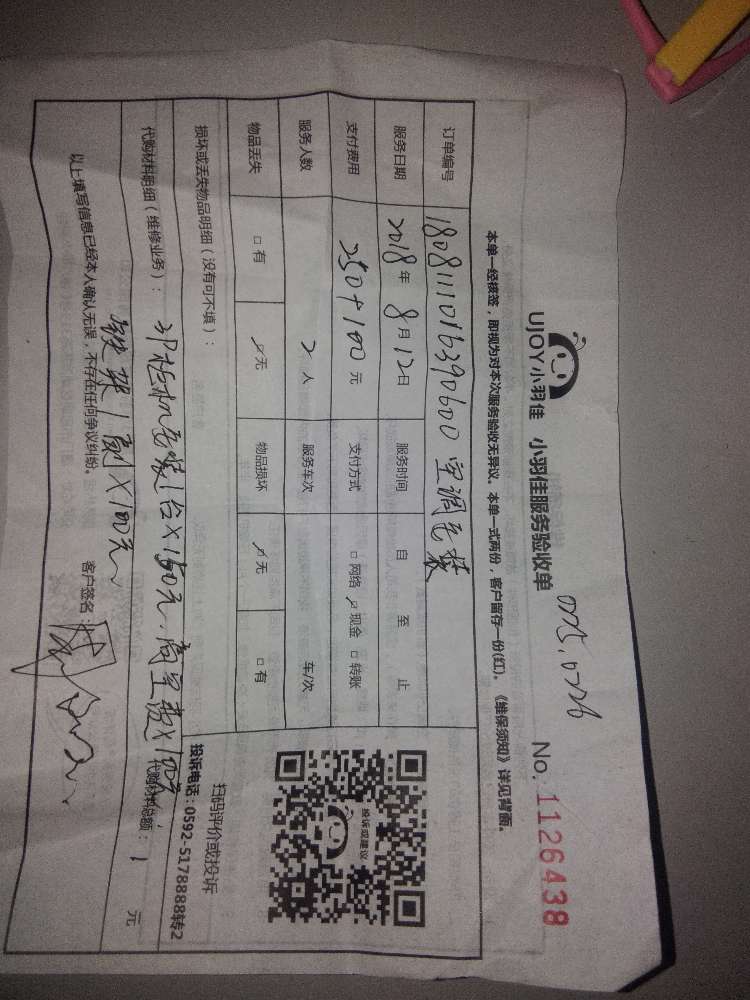 UJOY小羽佳 小羽佳服务验收单 No. 1126438
0075.0776
本单一经核签，即视为对本次服务验收无异议。本单一式两份，客户留存一份(红)。《维保须知》详见背面。
订单编号 1808111016390600 空调毛装
服务日期 2018年8月12日 服务时间 自 至 止
支付费用 250+100元 支付方式 □网络 ☑现金 □转账
服务人数 2人 服务车次 车/次
物品丢失 □有 ☑无 物品损坏 ☑无 □有
投诉或建议
扫码评价或投诉
投诉电话：0592-5178888转2
损坏或丢失物品明细（没有可不填）：
代购材料明细（维修业务）： 3P柜机安装1台×150元，高空费×100元
铁架1副×100元、
代购材料总额： 元
以上填写信息已经本人确认无误，不存在任何争议纠纷。 客户签名：